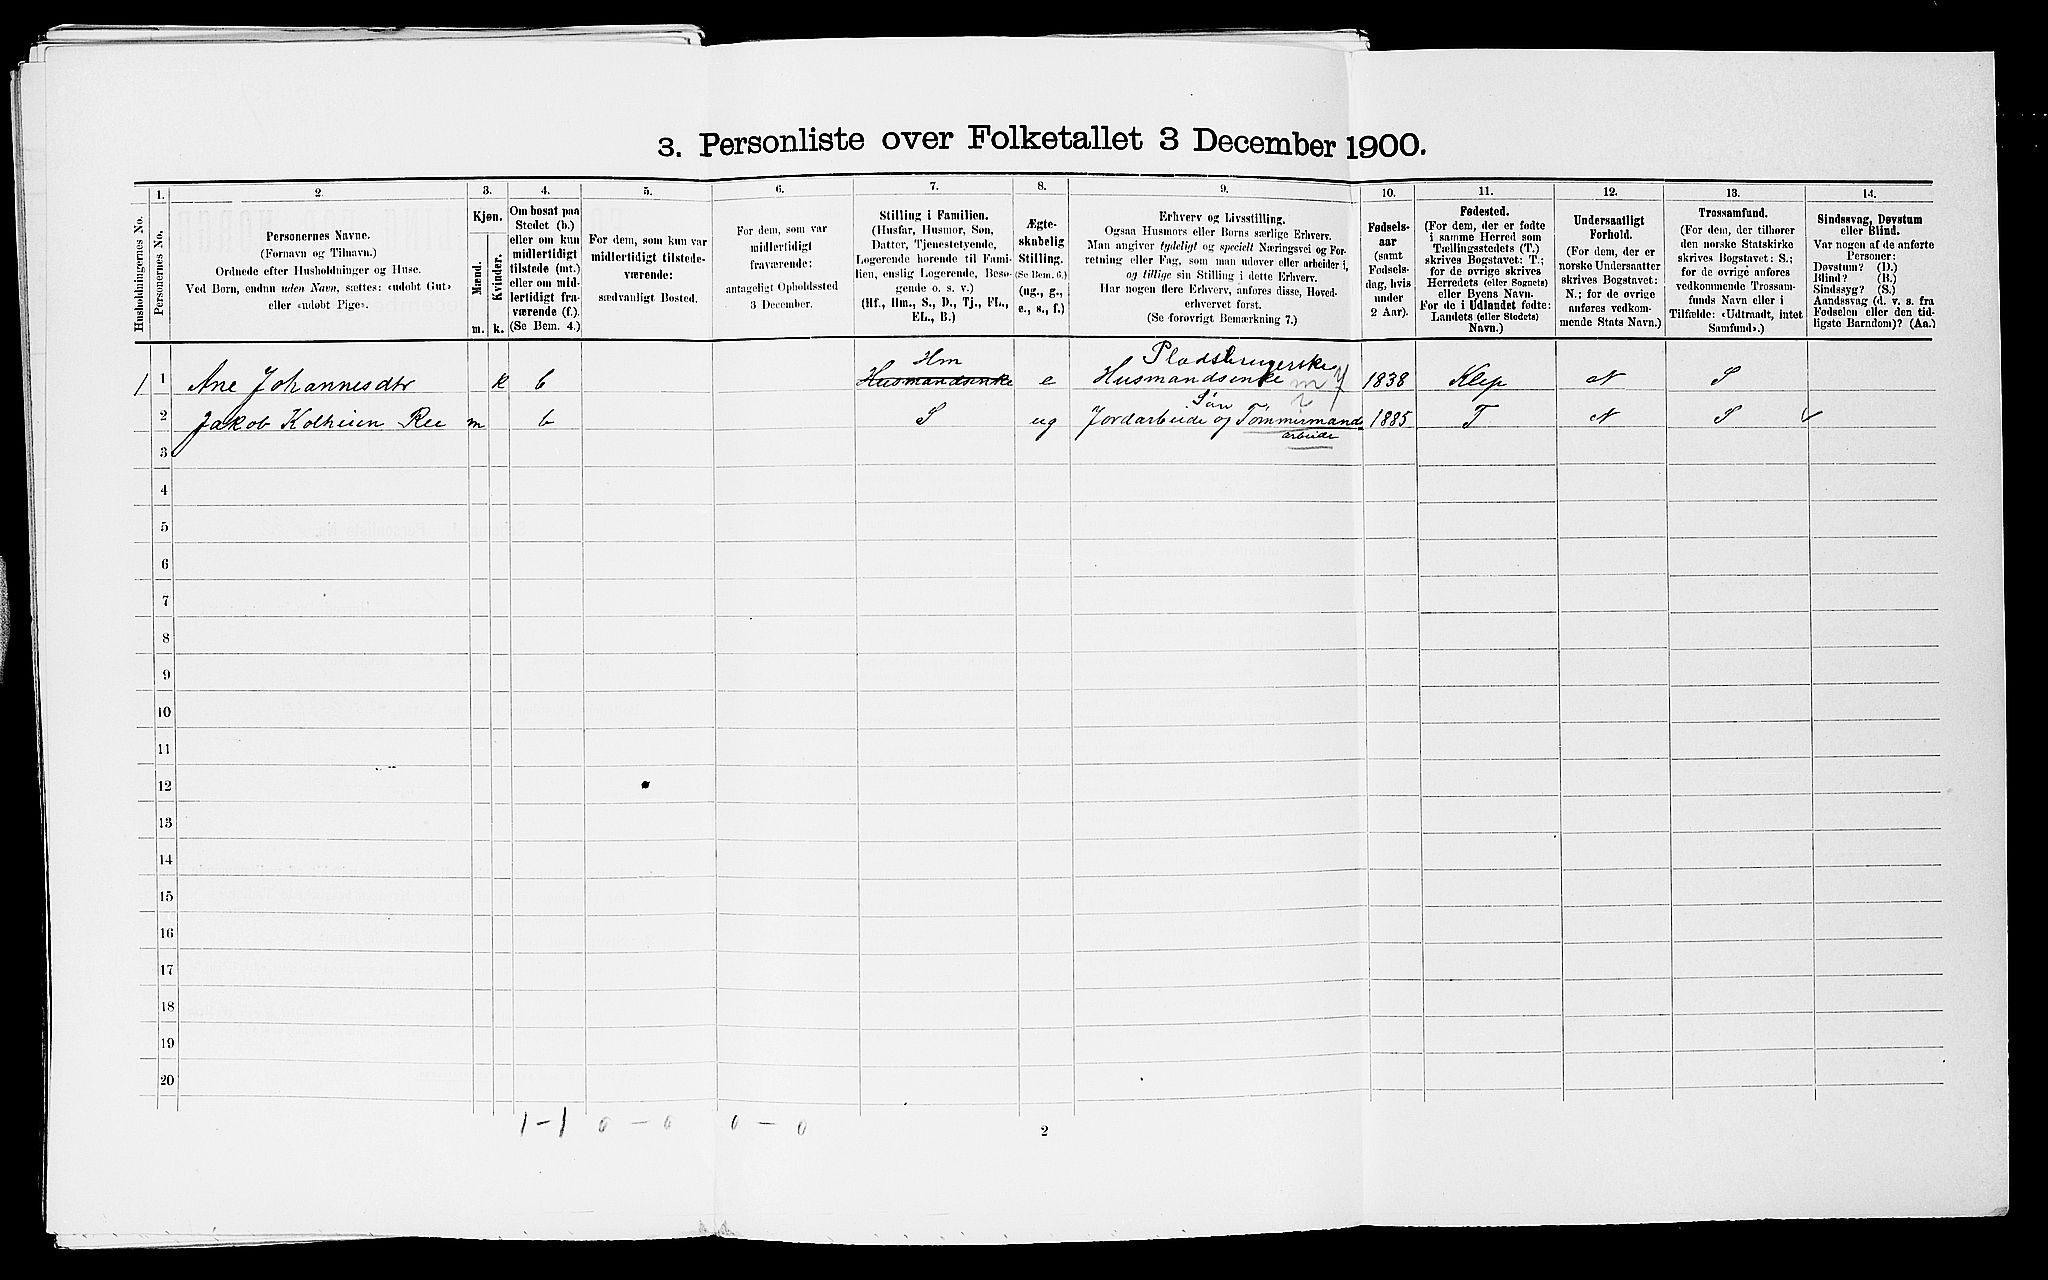 3. Personliste over Folketallet 3 December 1900.
1. 2. 3. 4. 5. 6. 7. 8. 9. 10. 11. 12. 13. 14.
Husholdningernes No.
Personernes No.
Personernes Navne.
(Fornavn og Tilnavn.)
Ordnede efter Husholdninger og Huse.
Ved Børn, endnu uden Navn, sættes: «udøbt Gut»
eller «udøbt Pige».
Kjøn.
Mænd.
Kvinder.
m. k.
Om bosat paa
Stedet (b.)
eller om kun
midlertidigt
tilstede (mt.)
eller om mid-
lertidigt fra-
værende (f.).
(Se Bem. 4.)
For dem, som kun var
midlertidigt tilstede-
værende:
sædvanligt Bosted.
For dem, som var
midlertidigt
fraværende:
antageligt Opholdssted
3 December.
Stilling i Familien.
(Husfar, Husmor, Søn,
Datter, Tjenestetyende,
Logerende hørende til Fami-
lien, enslig Logerende, Besø-
gende o. s. v.)
(Hf., Hm., S., D., Tj., FL.,
EL., B.)
Ægte-
skabelig
Stilling.
(Se Bem. 6.)
(ug., g.,
e., s., f.)
Erhverv og Livsstilling.
Ogsaa Husmors eller Børns særlige Erhverv.
Man angiver tydeligt og specielt Næringsvei og For-
retning eller Fag, som man udøver eller arbeider i,
og tillige sin Stilling i dette Erhverv.
Har nogen flere Erhverv, anføres disse, Hoved-
erhvervet først.
(Se forøvrigt Bemærkning 7.)
Fødsels-
aar
(samt
Fødsels-
dag, hvis
under
2 Aar).
Fødested.
(For dem, der er fødte
i samme Herred som
Tællingsstedets (T.)
skrives Bogstavet: T.;
for de øvrige skrives
Herredets (eller Sognets)
eller Byens Navn.
For de i Udlandet fødte:
Landets (eller Stedets)
Navn.)
Undersaatligt
Forhold.
(For dem, der er
norske Undersaatter
skrives Bogstavet:
N.; for de øvrige
anføres vedkom-
mende Stats Navn.)
Trossamfund.
(For dem, der tilhører
den norske Statskirke
skrives Bogstavet: S.;
for de øvrige anføres
vedkommende Trossam-
funds Navn eller i
Tilfælde: «Udtraadt, intet
Samfund».)
Sindssvag, Døvstum
eller Blind.
Var nogen af de anførte
Personer:
Døvstum? (D.)
Blind? (B.)
Sindssyg? (S.)
Aandssvag (d. v. s. fra
Fødselen eller den tid-
ligste Barndom)? (Aa.)
Hm Pladsbrugerske
1 1 Ane Johannesdtr k b Husmandsenke e Husmandsenke 1838 Klep N S
Søn
2 Jakob Kolheien Ree m b S ug Jordarbeide og Tømmermands 1885 T N S
arbeide
3
4
5
6
7
8
9
10
11
12
13
14
15
16
17
18
19
20
1 - 1 0 - 0 0 - 0
2